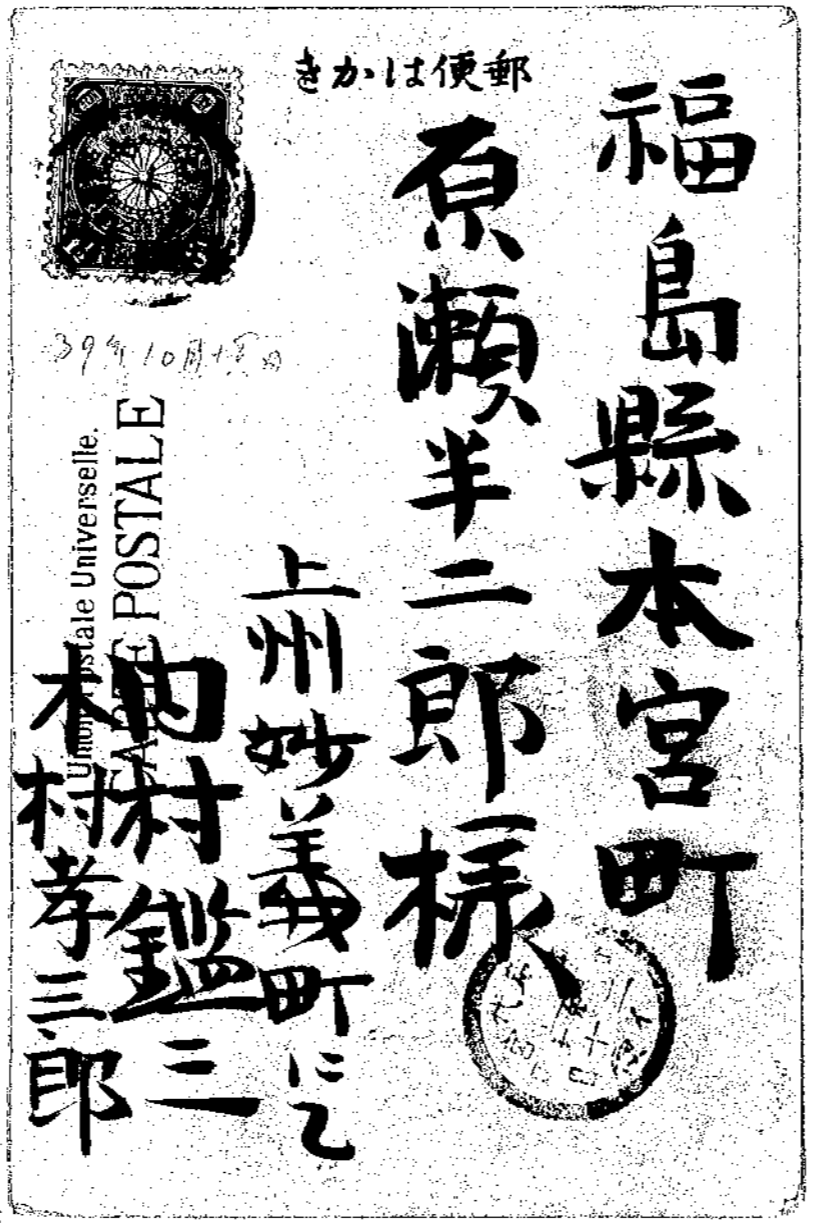 きかは便郵
福島縣本宮町
原瀬半二郎様
上州妙義町にて
内村鑑三
木村孝三郎
39年10月十五日
Union Postale Universelle.
CARTE POSTALE